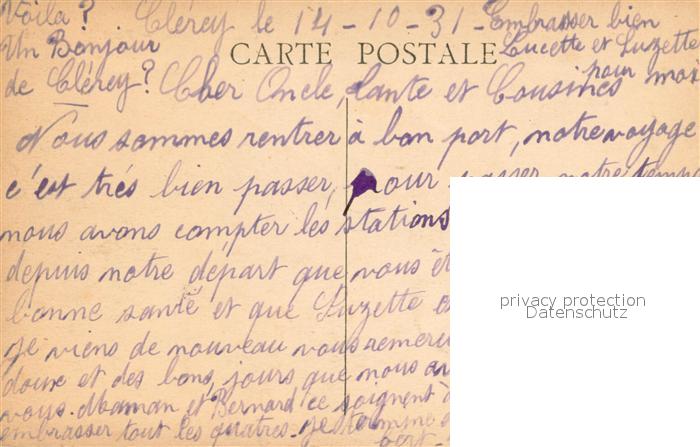 Voila? Clérey le 14-10-31- Embrasser bien
Un Bonjour
Lucette et Luzette
CARTE POSTALE
de Clérey? pour moi
Cher Oncle, tante et Cousines
Nous sommes rentrer à bon port, notre voyage
c'est trés bien passer, pour passer notre temps
nous avons compter les stations
depuis notre départ que vous
bonne santé et que Luzette
je viens de nouveau vous
doux et des bons, jours, que nous
vous. Maman et Bernard ce soignent
embrasser tout les quatres.
privacy protection
Datenschutz